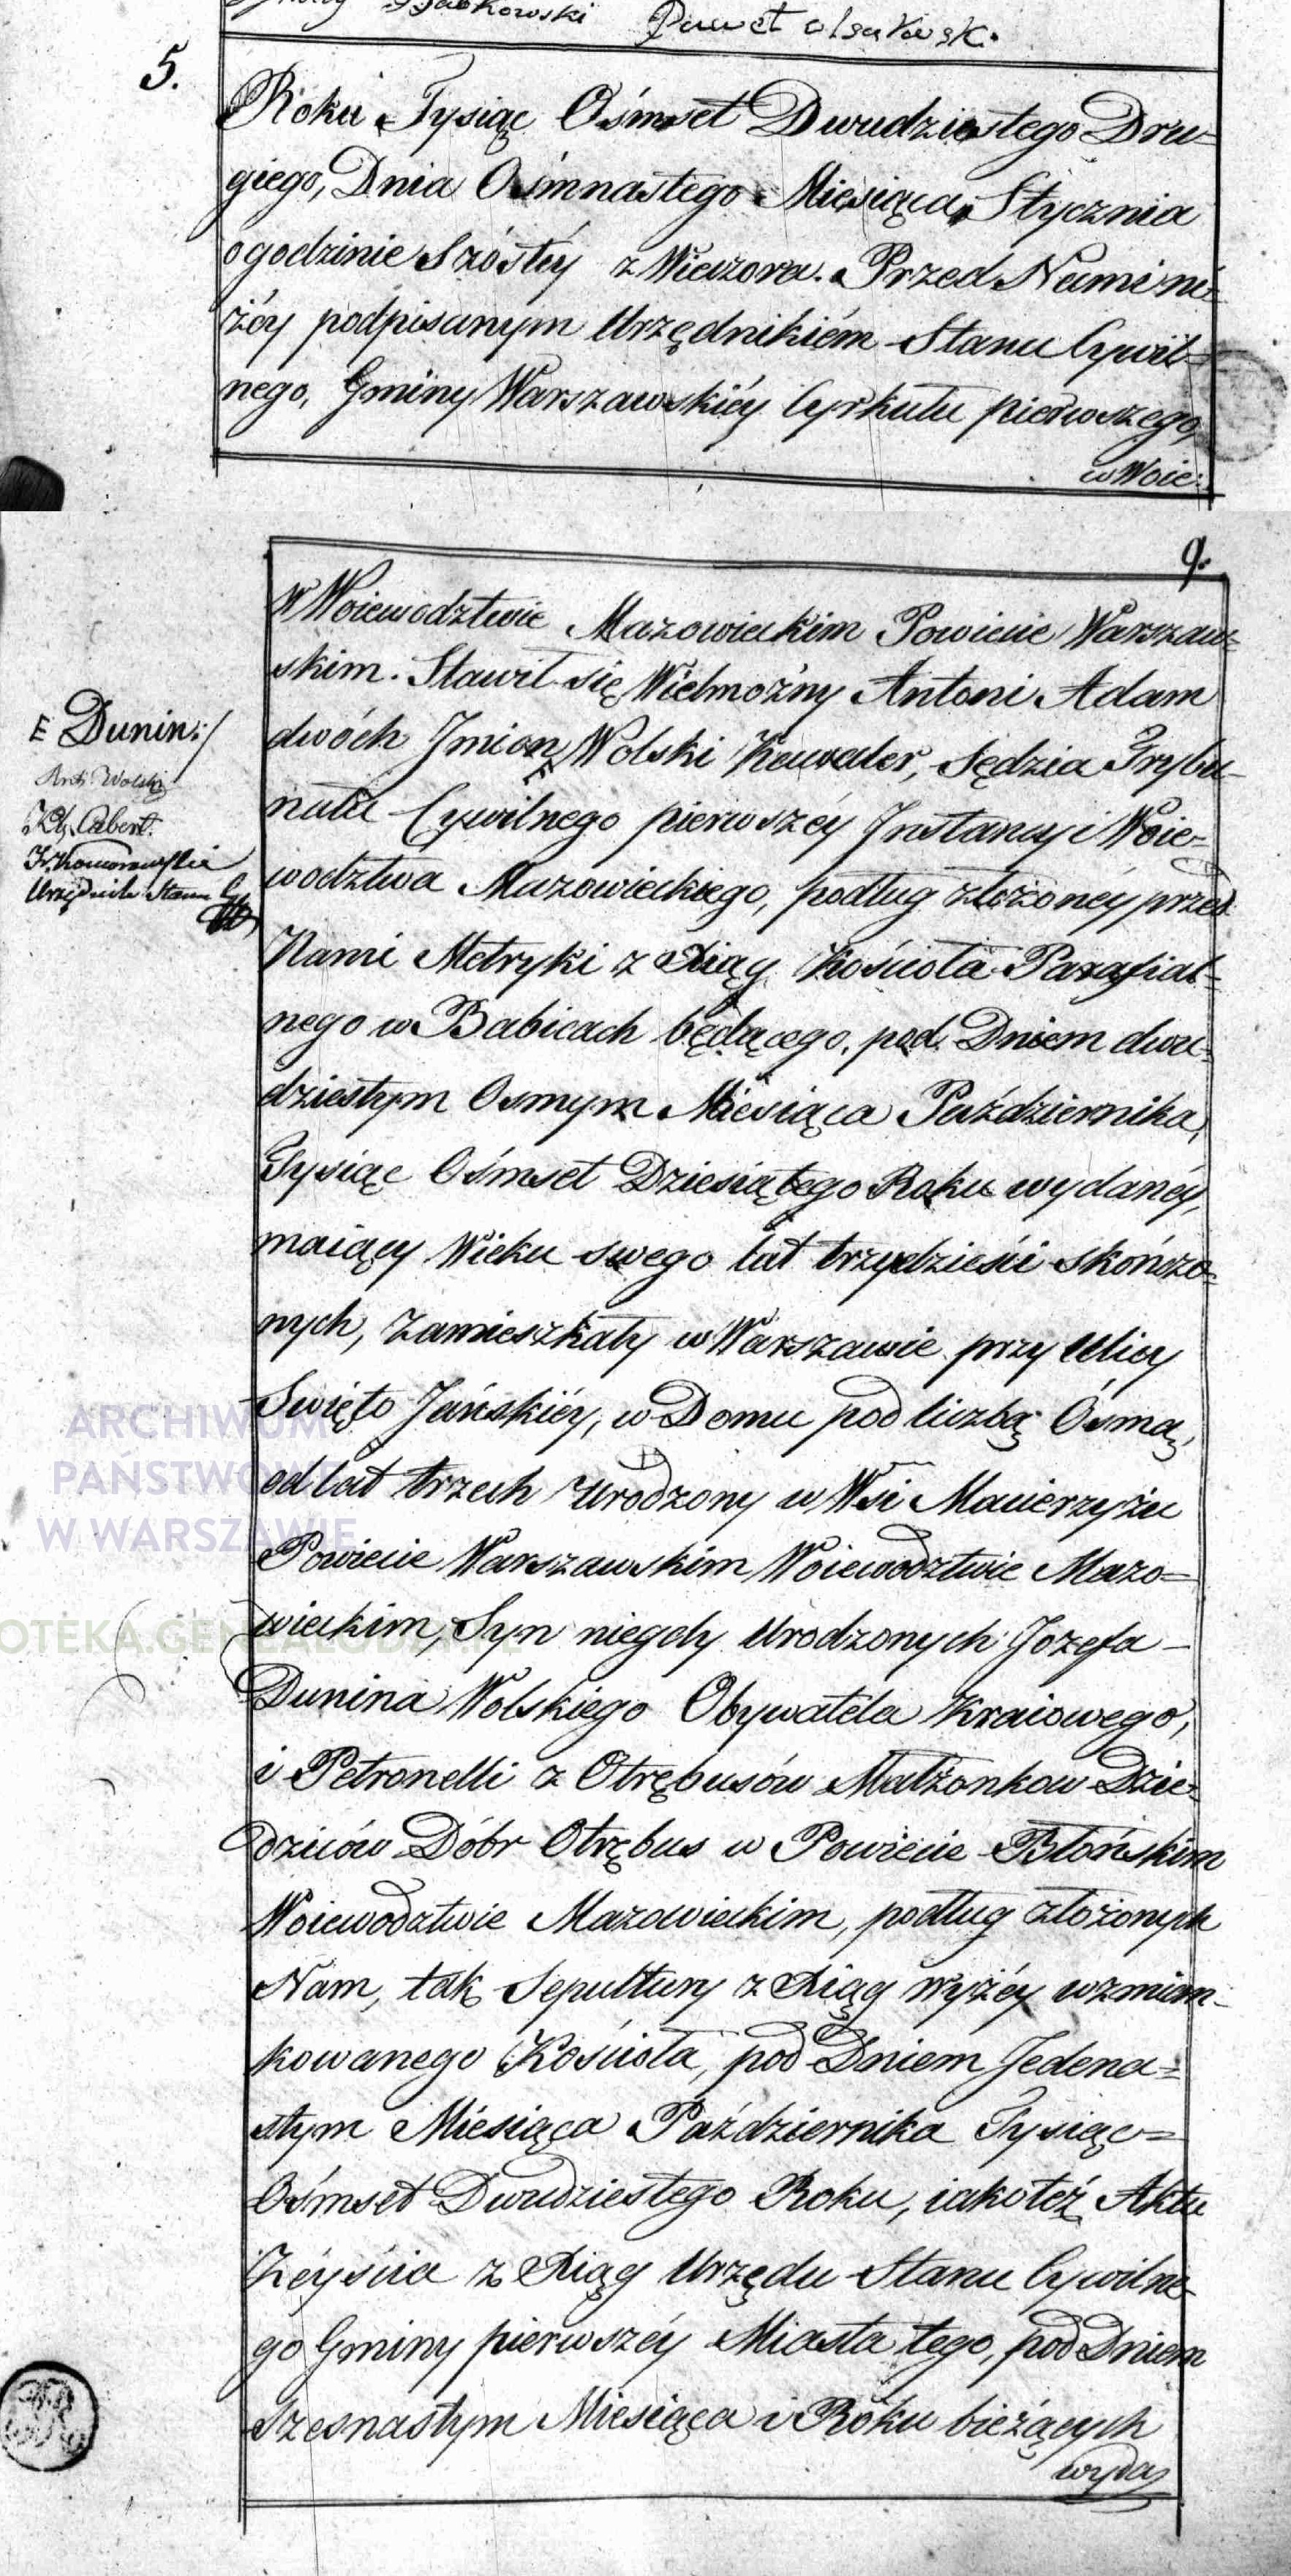 Dąbkowski Paweł
5.
Roku Tysiąc Ośmset Dwudziestego Dru=
giego, Dnia Ośmnastego Miesiąca Stycznia
o godzinie Szóstéy z Wieczora. Przed Nami ni=
żéy podpisanym Urzędnikiém Stanu Cywil=
nego, Gminy Warszawskiéy Cyrkułu pierwszego,
w Woie:
9.
W Woiewodztwie Mazowieckim Powiecie Warszaw=
skim. Stawił się Wielmożny Antoni Adam
dwóch Jmion Wolski Kawaler, Sędzia Trybu=
nału Cywilnego pierwszéy Jnstancyi Woie=
wodztwa Mazowieckiego, podług złożonéy przed
Nami Metryki z Xiąg Kościoła Parafial=
nego w Babicach będącego, pod Dniem dwu=
dziestym Osmym Miesiąca Października,
Tysiąc Ośmset Dziesiątego Roku wydanéy,
maiący Wieku swego lat trzydzieści skończo=
nych, zamieszkały w Warszawie przy Ulicy
Swięto Jańskiéy, w Domu pod liczbą Ósmą,
od lat trzech urodzony w Wsi Macierzyżu
Powiecie Warszawskim Woiewodztwie Mazo=
wieckim, Syn niegdy Urodzonych Jozefa
Dunina Wolskiego Obywatela Kraiowego,
i Petronelli z Otrębusów Małżonkow Dzie=
dziców Dóbr Otrębus w Powiecie Błońskim
Woiewodztwie Mazowieckim, podług złożonych
Nam, tak Sepultury z Xiąg wyżéy wzmian=
kowanego Kościoła, pod Dniem Jedena=
stym Miesiąca Października Tysiąc=
Ośmset Dwudziestego Roku, iakoteż Aktu
Zéyścia z Xiąg Urzędu Stanu Cywilne=
go Gminy pierwszéy Miasta tego, pod Dniem
Szesnastym Miesiąca i Roku bieżących
wyda
Dunin:/
Ant: Wolski
Fr. Komorowski
Urzędnik Stanu Cy
ARCHIWUM
PAŃSTWOWE
W WARSZAWIE